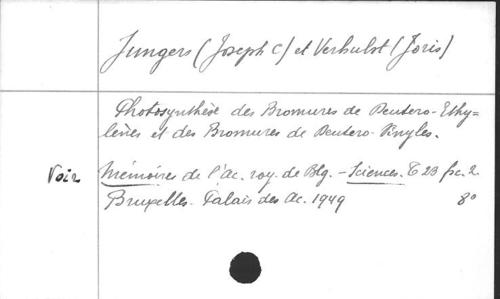 Jungers (Joseph C) et Verhulst (Joris)
Photosynthèse des Bromures de Deutero-Ethy=
lènes et des Bromures de Deutero-Vinyles.
Voir Mémoires de l'Ac. roy. de Blg. - Sciences. T 23 fsc. 2.
Bruxelles. Palais des Ac. 1949 8°